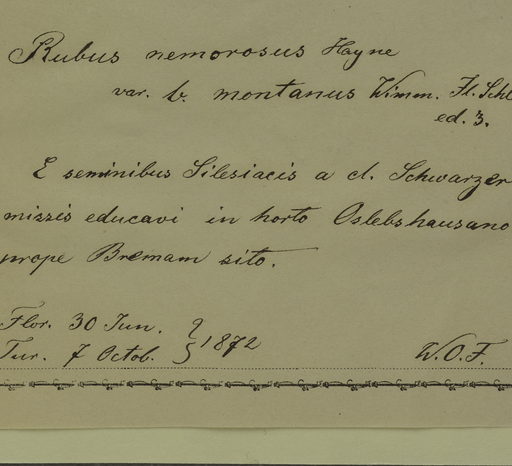 Rubus nemorosus Hayne
var. b. montanus Wimm. Fl. Schl
ed. 3.
E seminibus Silesiacis a cl. Schwarzer
missis educavi in horto Oslebshausano
prope Bremam sito.
Flor. 30 Jun.
Tur. 7 Octob. } 1872
W.O.F.